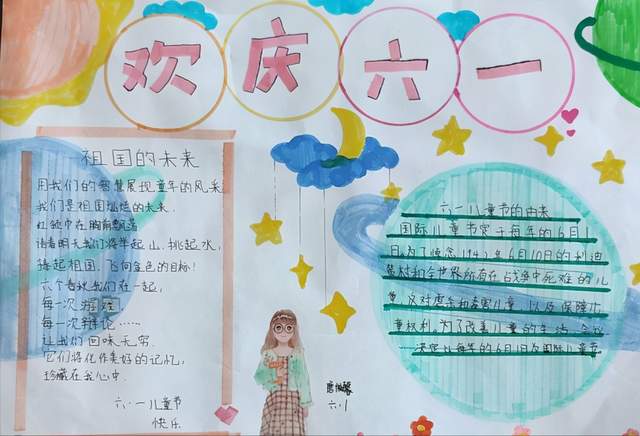 欢庆六一
祖国的未来
用我们的智慧展现童年的风采
我们是祖国灿烂的未来.
红领巾在胸前飘荡
请看明天我们将举起山,挑起水,
捧起祖国,飞向金色的目标!
六个春秋我们在一起,
每一次
每一次辩论……
让我们回味无穷.
它们将化作美好的记忆,
珍藏在我心中.
六·一儿童节
快乐
六·一儿童节的由来
国际儿童节定于每年的6月1
日.为了悼念1942年6月10日的利迪
策村和全世界所有在战争中死难的儿
童,反对虐杀和毒害儿童,以及保障儿
童权利.为了改善儿童的生活,会议
决定以每年的6月1日为国际儿童节
六·1